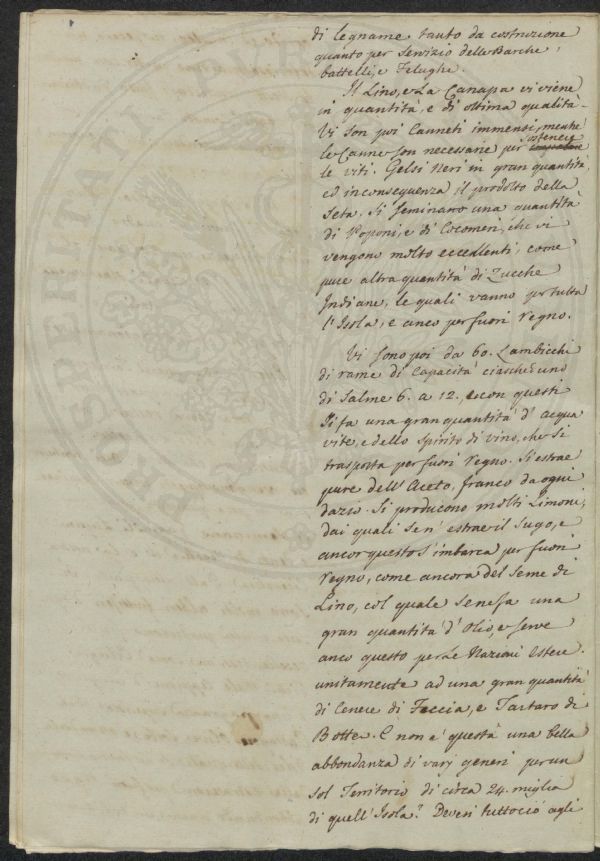 di legname tanto da costruzione
quanto per servizio delle Barche,
battelli, e Felughe.
Il Lino, e La Canapa vi viene
in quantità, e di ottima qualità.
Vi son poi Canneti immensi, mentre
sostenere
le Canne son necessarie per
le viti. Gelsi Neri in gran quantità,
ed inconseguenza il prodotto della
Seta. Si seminano una quantità
di Poponi, e di Cocomeri, che vi
vengono molto eccellenti, come
pure altra quantità di Zucche
Indiane, le quali vanno per tutta
l'Isola, e anco per fuori Regno.
Vi sono poi da 60. Lambicchi
di rame di Capacità ciascheduno
di Salme 6. a 12., e con questi
si fa una gran quantità d'acqua
vite, e dello spirito di vino, che si
trasporta per fuori Regno. Si estrae
pure dell'Aceto, franco da ogni
dazio. Si producono molti Limoni,
dai quali sen'estrae il Sugo, e
ancor questo s'imbarca per fuori
Regno, come ancora del Seme di
Lino, col quale se ne fa una
gran quantità d'Olio, e serve
anco questo per le Nazioni Estere.
unitamente ad una gran quantità
di Cenere di Feccia, e Tartaro di
Botte. E non e' questa una bella
abbondanza di varj generi per un
sol Territorio di circa 24. miglia
di quell'Isola? Devesi tuttociò agli
PRO DEPERDITI